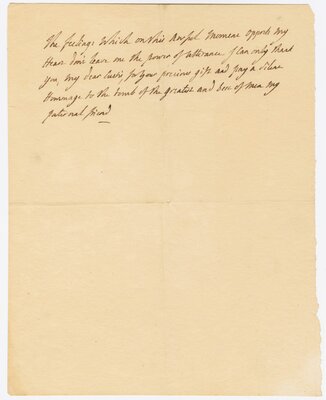 The feelings Which on this Awful Moment oppress my
Heart don't leave me the power of utterance. I Can only thank
you, my dear Custis, for your precious gift and pay a Silent
Hommage to the tomb of the greatest and best of men my
paternal friend